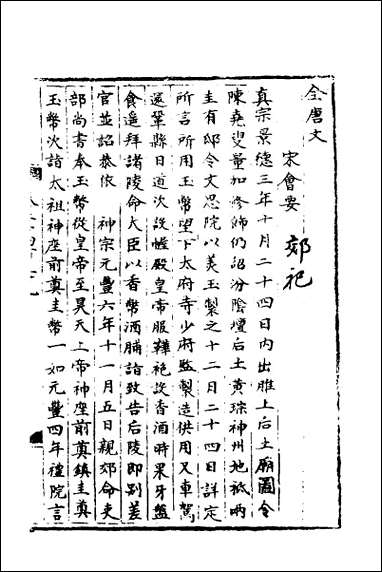 全唐文
宋會要 郊祀
真宗景德三年十月二十四日内出脽上后土廟圖令
陳堯叟量加修飾仍詔汾陰壇后土黄琮神州地祇兩
圭有邸令文思院以美玉製之十二月二十四日詳定
所言所用玉幣望下太府寺少府監製造供用又車駕
還鞏縣日道次設幄殿皇帝服鞾袍設香酒時果牙盤
食遥拜諸陵命大臣以香幣酒脯詣致告后陵即别差
官並詔恭依 神宗元豐六年十一月五日親郊命吏
部尚書奉玉幣從皇帝至昊天上帝神座前奠鎮圭奠
玉幣次詣太祖神座前奠圭幣一如元豐四年禮院言